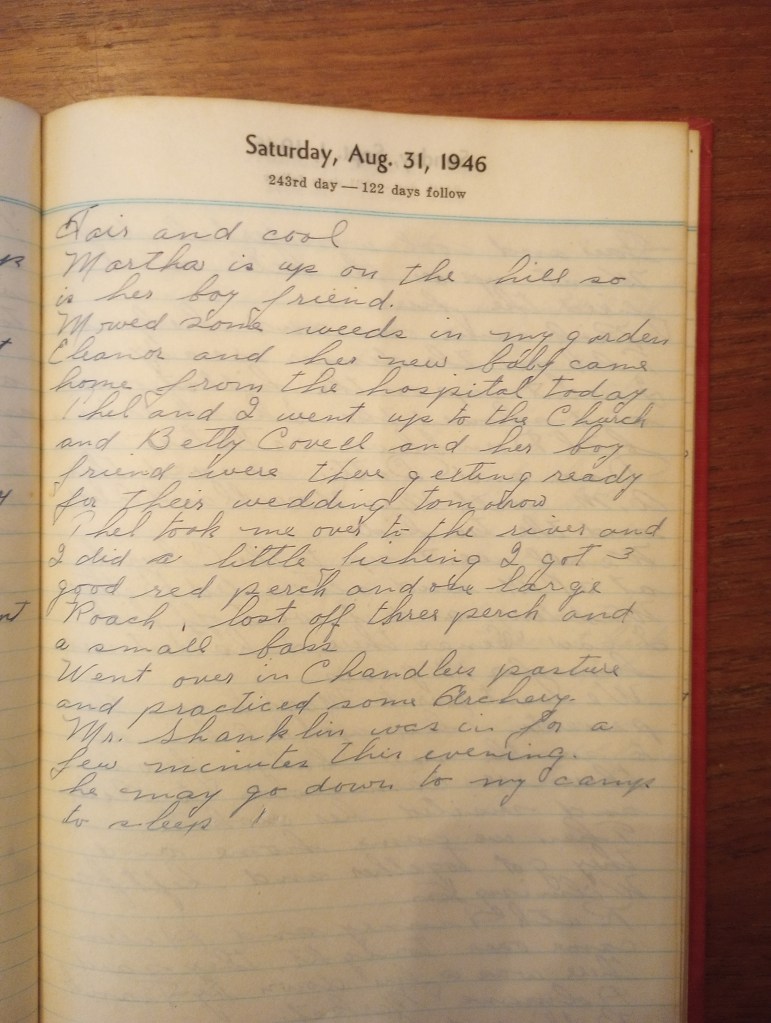 Saturday, Aug. 31, 1946
243rd day — 122 days follow
Fair and cool
Martha is up on the hill so
is her boy friend.
Mowed some weeds in my garden
Eleanor and her new baby came
home from the hospital today
Thel and I went up to the Church
and Betty Covell and her boy
friend were there getting ready
for their wedding tomorrow
Thel took me over to the river and
I did a little fishing I got 3
good red perch and one large
Roach, lost off three perch and
a small bass
Went over in Chandlers pasture
and practiced some Archery.
Mr. Shanklin was in for a
few minutes this evening.
he may go down to my camp
to sleep